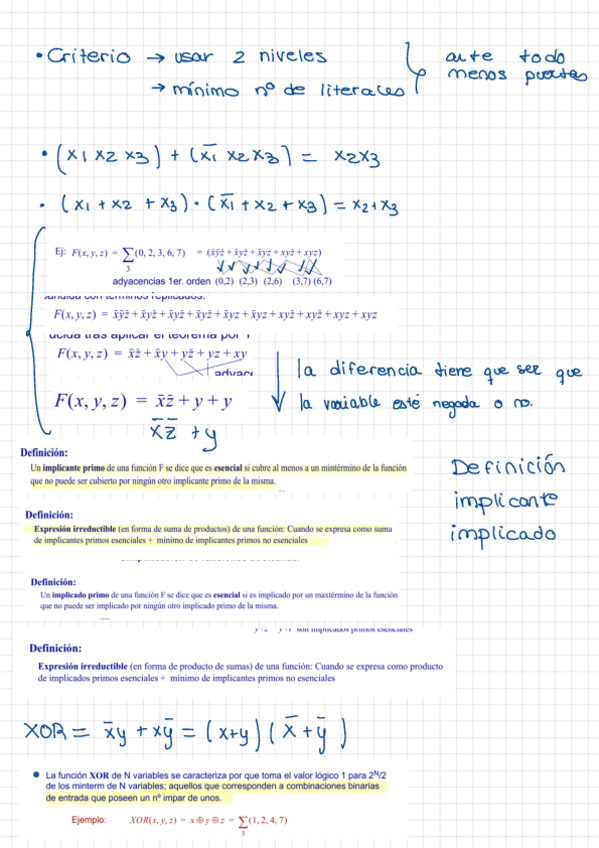 • Criterio → usar 2 niveles
→ mínimo nº de literales
ante todo
menos puertas
• (x1 x2 x3) + (x̄1 x2 x3) = x2x3
• (x1 + x2 + x3) · (x̄1 + x2 + x3) = x2+x3
Ej: F(x, y, z) = ∑(0, 2, 3, 6, 7) = (x̄ȳz̄ + x̄yz̄ + x̄yz + xyz̄ + xyz)
3
adyacencias 1er. orden (0,2) (2,3) (2,6) (3,7) (6,7)
términos replicados.
F(x, y, z) = x̄ȳz̄ + x̄yz̄ + x̄yz̄ + x̄yz + x̄yz̄ + xyz̄ + x̄yz + xyz + xyz̄ + xyz
tras aplicar el teorema por
F(x, y, z) = x̄z̄ + x̄y + yz̄ + yz + xy
F(x, y, z) = x̄z̄ + y + y
x̄z̄ + y
la diferencia tiene que ser que
la variable esté negada o no.
Definición:
Un implicante primo de una función F se dice que es esencial si cubre al menos a un mintérmino de la función
que no puede ser cubierto por ningún otro implicante primo de la misma.
Definición
implicante
implicado
Definición:
Expresión irreductible (en forma de suma de productos) de una función: Cuando se expresa como suma
de implicantes primos esenciales + mínimo de implicantes primos no esenciales
Definición:
Un implicado primo de una función F se dice que es esencial si es implicado por un maxtérmino de la función
que no puede ser implicado por ningún otro implicado primo de la misma.
son implicados primos esenciales
Definición:
Expresión irreductible (en forma de producto de sumas) de una función: Cuando se expresa como producto
de implicados primos esenciales + mínimo de implicantes primos no esenciales
XOR = x̄y + xȳ = (x+y) (x̄ + ȳ)
• La función XOR de N variables se caracteriza por que toma el valor lógico 1 para 2ᴺ/2
de los minterm de N variables; aquellos que corresponden a combinaciones binarias
de entrada que poseen un nº impar de unos.
Ejemplo: XOR(x, y, z) = x ⊕ y ⊕ z = ∑(1, 2, 4, 7)
3